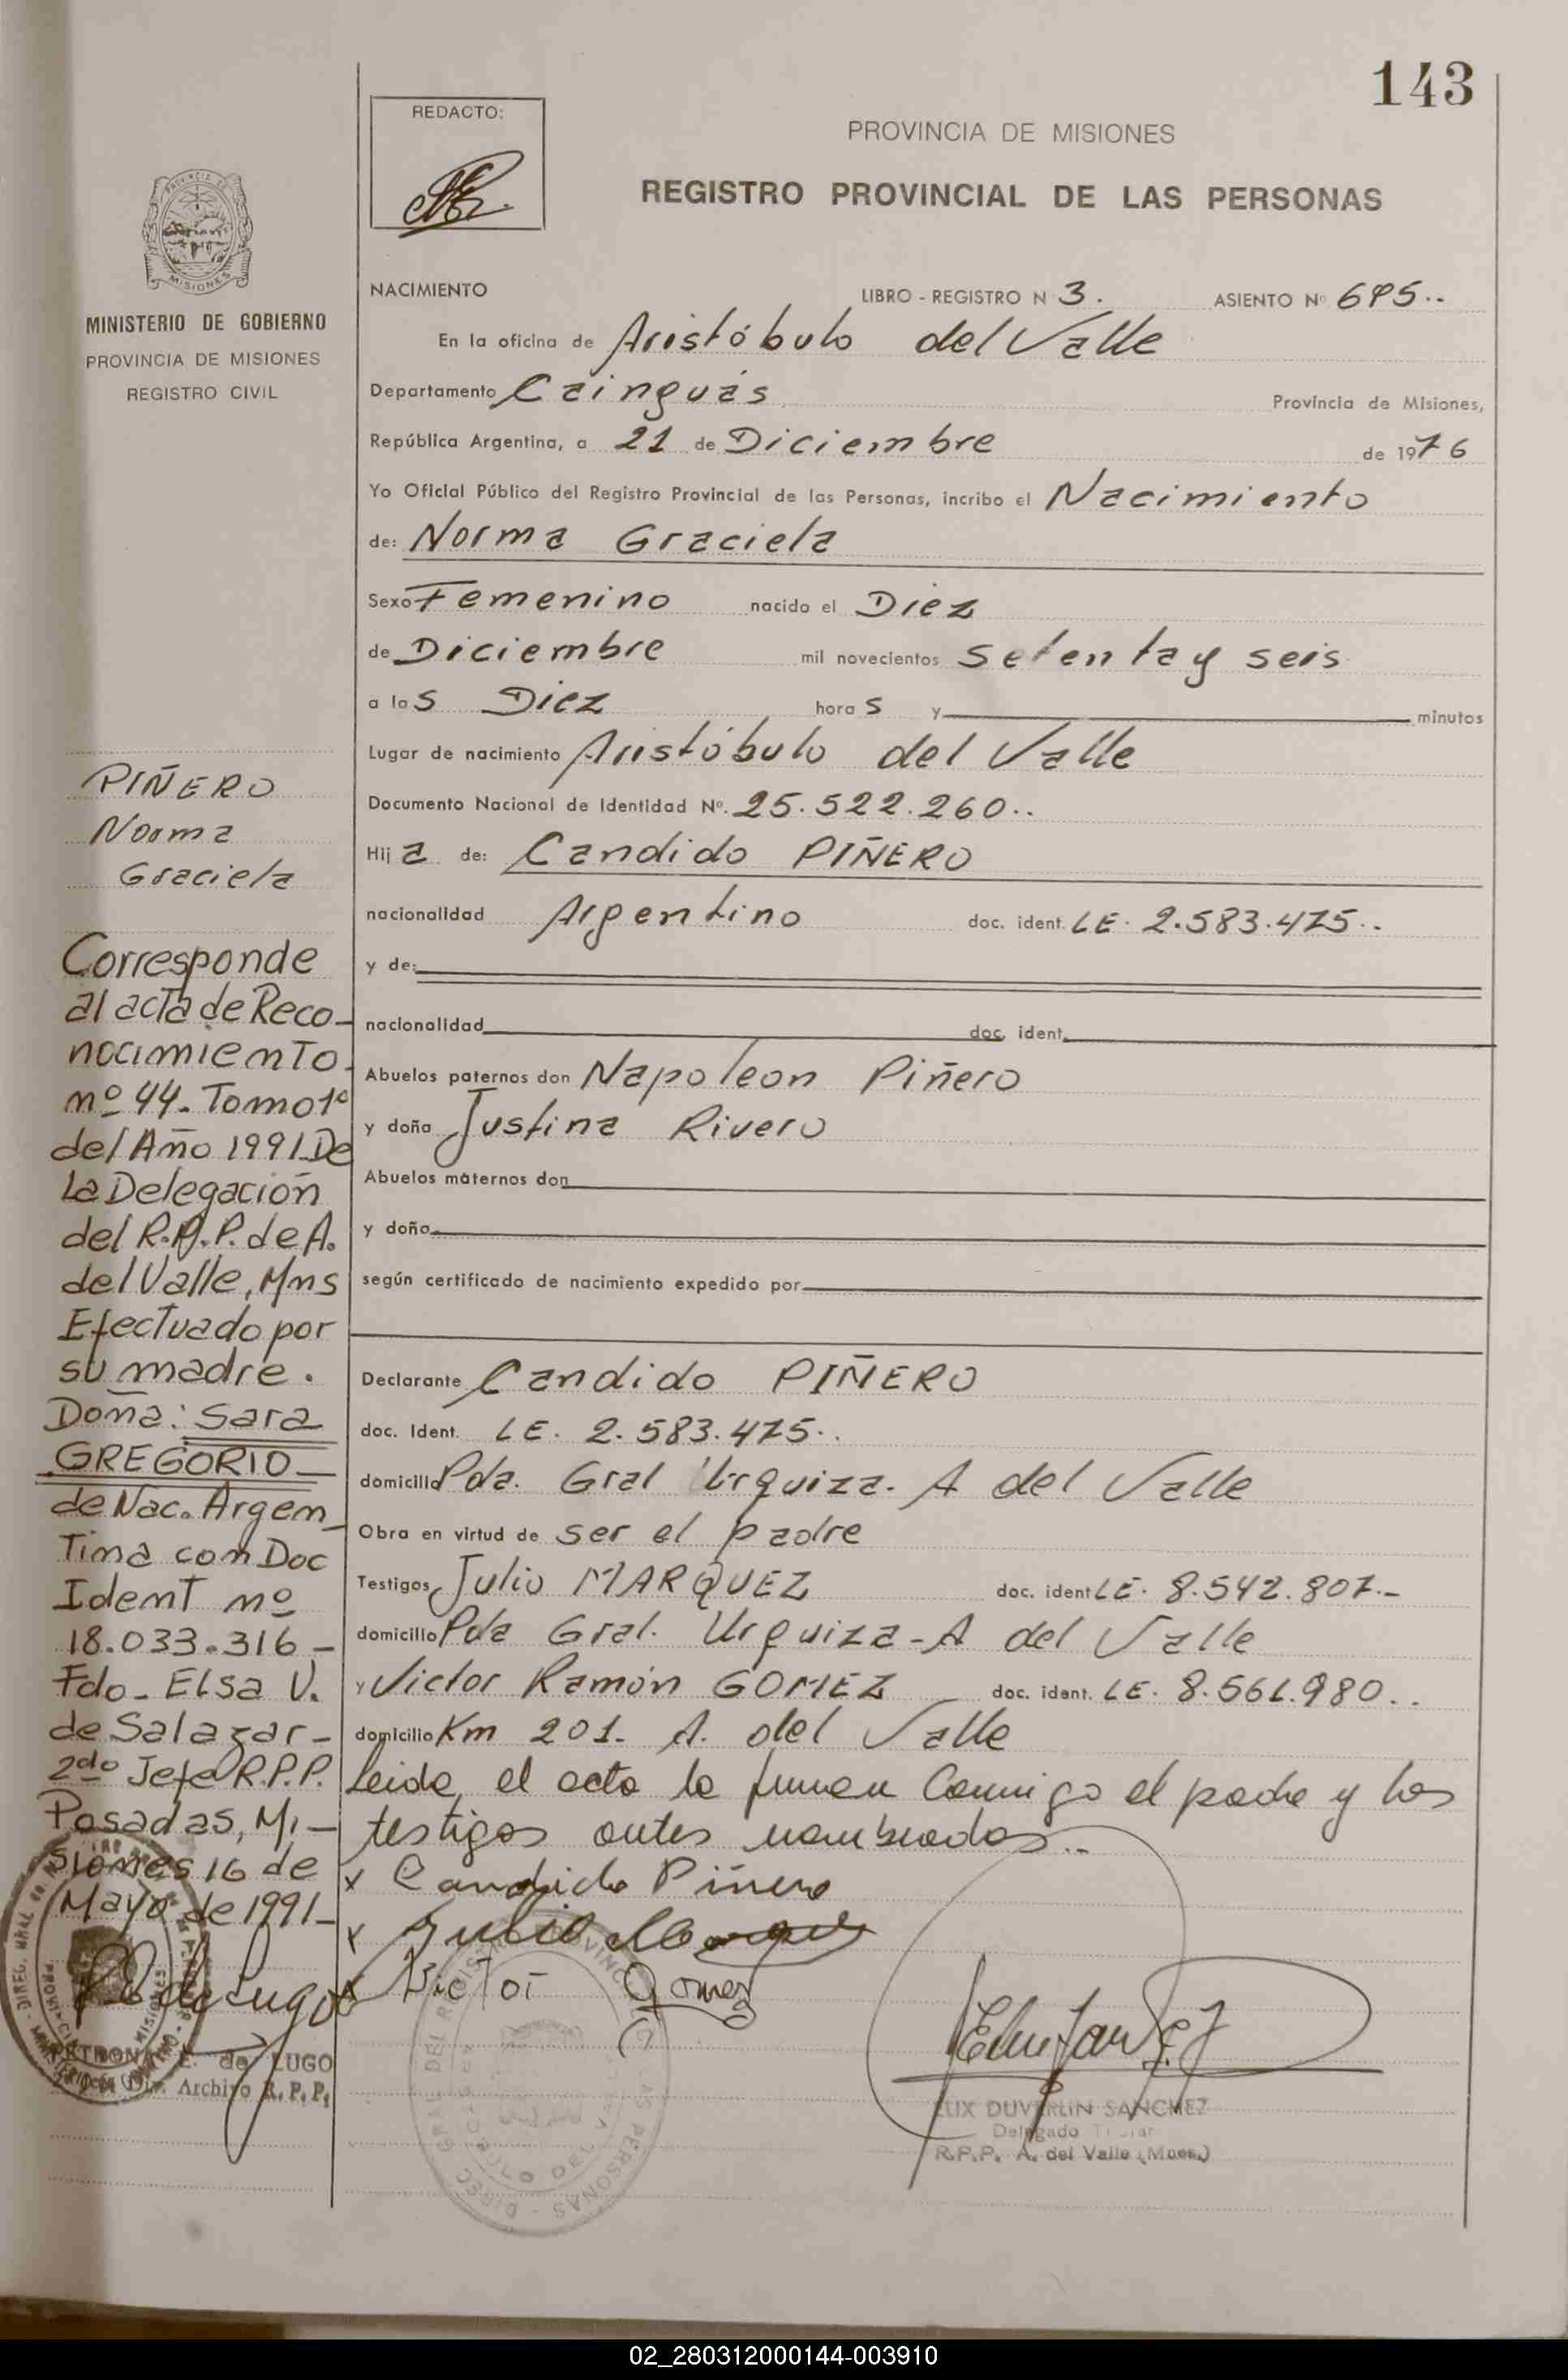 143
REDACTO:
PROVINCIA DE MISIONES
REGISTRO PROVINCIAL DE LAS PERSONAS
MINISTERIO DE GOBIERNO
PROVINCIA DE MISIONES
REGISTRO CIVIL
PIÑERO
Norma
Graciela
Corresponde
al acta de Reco-
nocimiento.
nº 44. Tomo 1º
del Año 1991. De
La Delegación
del R.P.P. de A.
del Valle, Mns
Efectuado por
su madre.
Doña: Sara
GREGORIO
de Nac. Argen
Tina con Doc
Ident nº
18.033.316 -
Fdo - Elsa V.
de Salazar -
2do Jefe R.P.P.
Posadas, Mi-
siones 16 de
Mayo de 1991 -
PETRONA E. de LUGO
Archivo R. P. P.
NACIMIENTO LIBRO - REGISTRO N 3. ASIENTO Nº 695..
En la oficina de Aristóbulo del Valle
Departamento Cainguás Provincia de Misiones,
República Argentina, a 21 de Diciembre de 1976
Yo Oficial Público del Registro Provincial de las Personas, incribo el Nacimiento
de: Norma Graciela
Sexo Femenino nacido el Diez
de Diciembre mil novecientos setenta y seis
a las Diez horas y minutos
Lugar de nacimiento Aristóbulo del Valle
Documento Nacional de Identidad Nº. 25.522.260..
Hija de: Candido PIÑERO
nacionalidad Argentino doc. ident. LE. 2.583.475..
y de:
nacionalidad doc. ident.
Abuelos paternos don Napoleon Piñero
y doña Justina Rivero
Abuelos maternos don
y doña
según certificado de nacimiento expedido por
Declarante Candido PIÑERO
doc. Ident. LE. 2.583.475..
domicilio Pda. Gral Urquiza. A del Valle
Obra en virtud de ser el padre
Testigos Julio MARQUEZ doc. ident LE. 8.542.807.-
domicilio Pda Gral. Urquiza - A del Valle
y Victor Ramón GOMEZ doc. ident. LE. 8.561.980..
domicilio Km 201. A. del Valle
Leida el acta la firman Conmigo el padre y los
testigos antes nombrados..
x Candido Piñero
x Julio Marquez
x Victor Gomez
ELIX DUVERLIN SANCHEZ
Delegado Titular
R.P.P. A. del Valle (Mnes.)
02_280312000144-003910